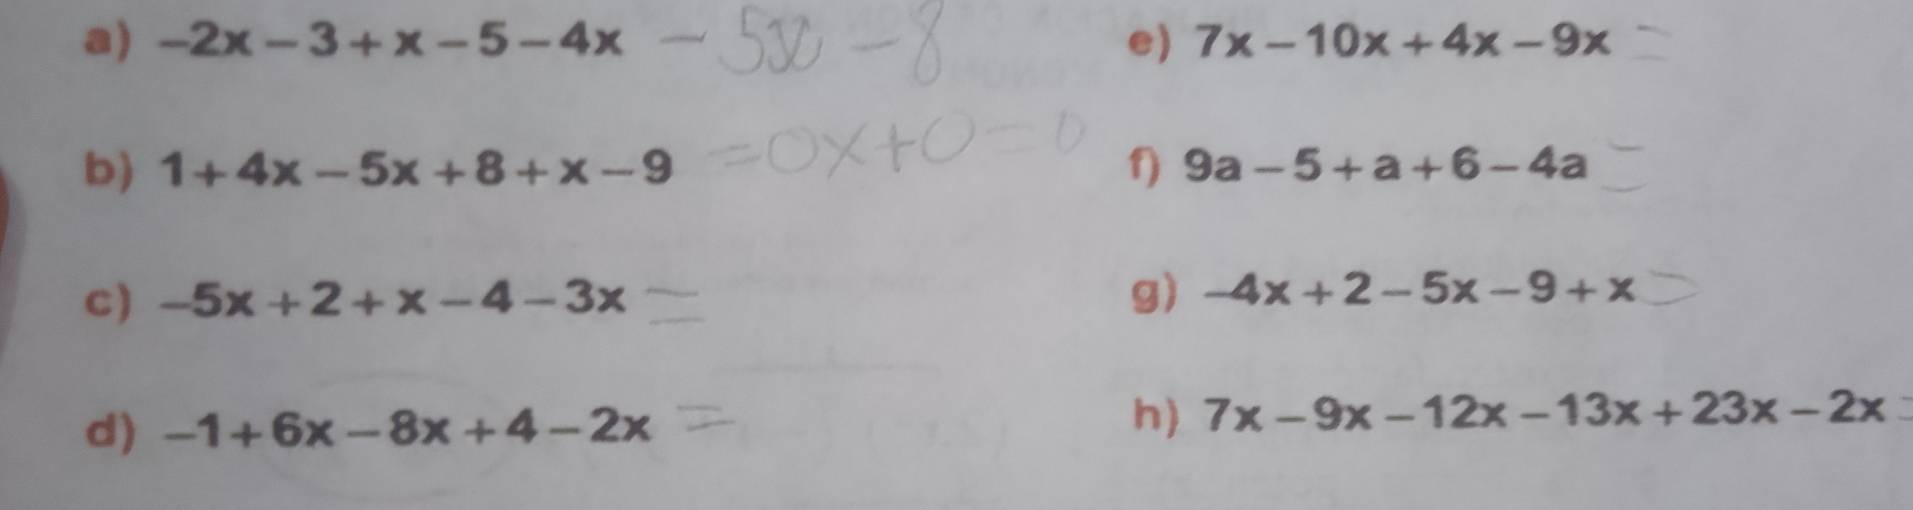 a) –2x – 3 + x – 5 – 4x – 5x – 8
b) 1 + 4x – 5x + 8 + x – 9 = 0x + 0 = 0
c) –5x + 2 + x – 4 – 3x =
d) –1 + 6x – 8x + 4 – 2x =
e) 7x – 10x + 4x – 9x =
f) 9a – 5 + a + 6 – 4a =
g) –4x + 2 – 5x – 9 + x =
h) 7x – 9x – 12x – 13x + 23x – 2x =